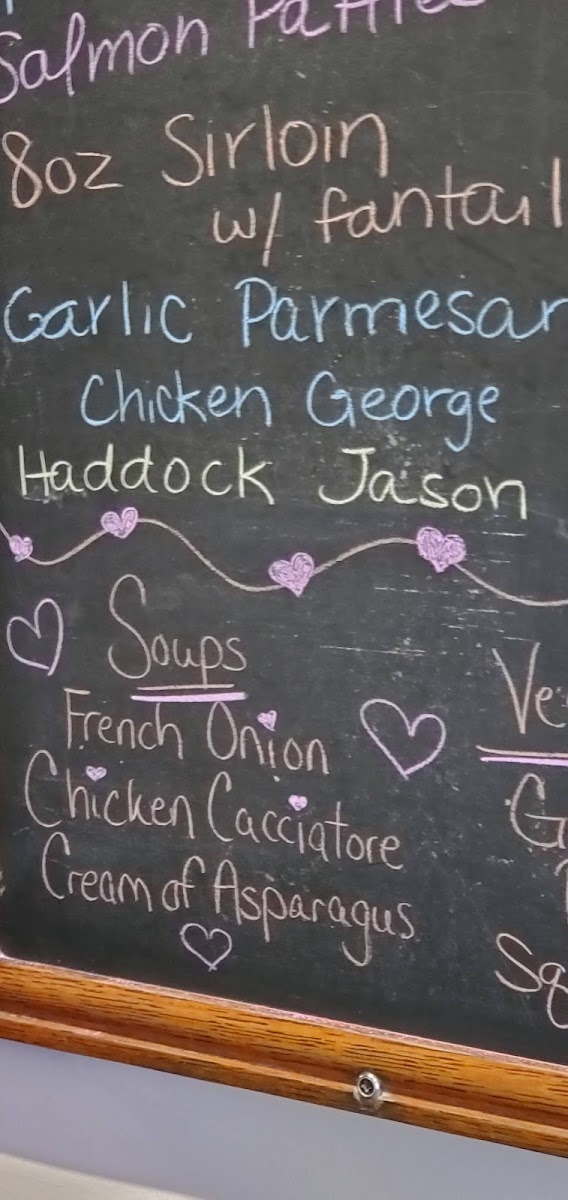 Salmon Pattie
8oz Sirloin
w/ fantail
Garlic Parmesan
Chicken George
Haddock Jason
Soups
French Onion
Chicken Cacciatore
Cream of Asparagus
Ve
G
Sq